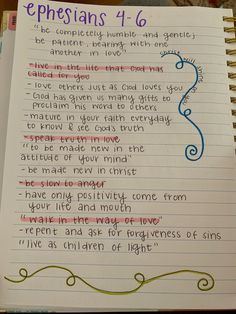 ephesians 4-6
"be completely humble and gentle;
be patient, bearing with one
another in love"
- live in the life that God has
called for you
- love others just as God loves you
- God has given us many gifts to
proclaim his word to others
- mature in your faith everyday
to know & see God's truth
- speak truth in love
"to be made new in the
attitude of your mind"
- be made new in christ
- be slow to anger
- have only positivity come from
your life and mouth
- "walk in the way of love"
- repent and ask for forgiveness of sins
"live as children of light"